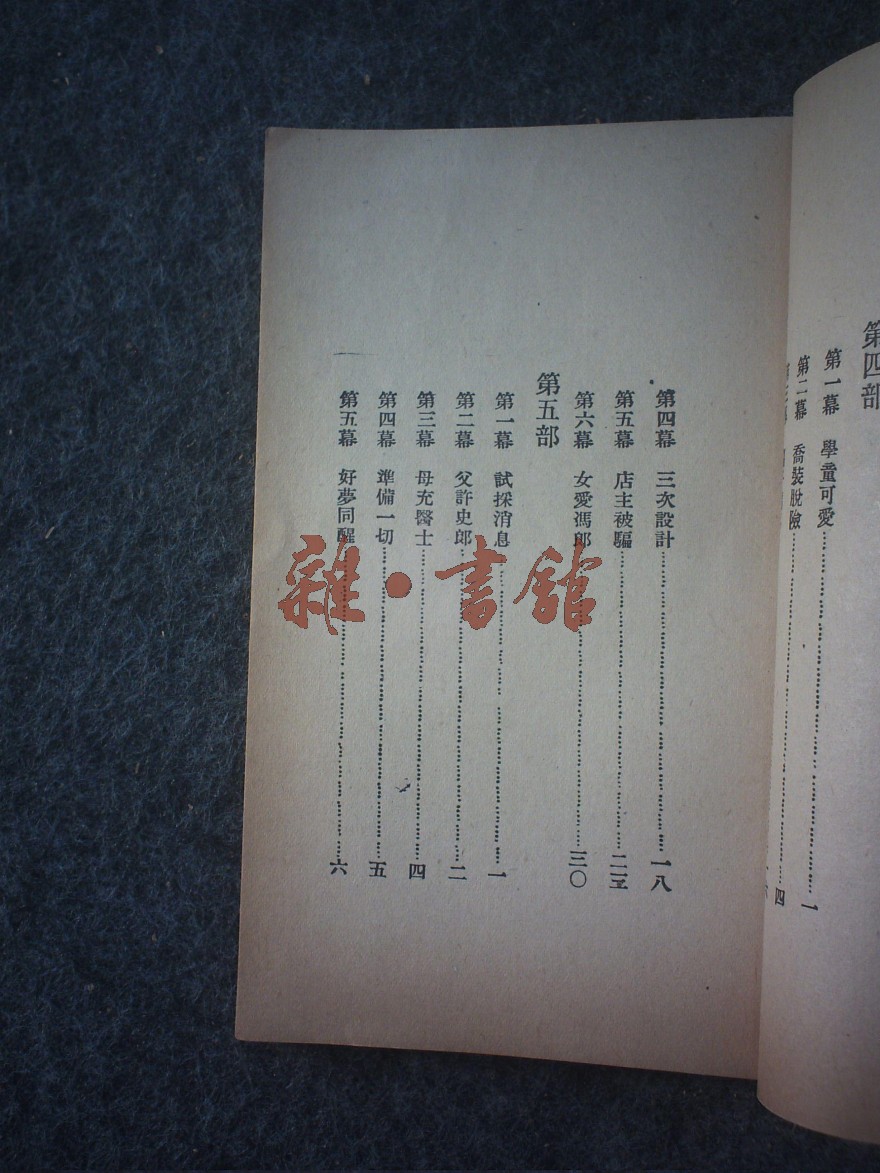 第四部
第一幕　學童可愛……一
第二幕　喬裝脫險……四
第四幕　三次設計……一八
第五幕　店主被騙……二三
第六幕　女愛馮郎……三〇
第五部
第一幕　試採消息……一
第二幕　父許史郎……二
第三幕　母充醫士……四
第四幕　準備一切……五
第五幕　好夢同醒……六
雜·書館